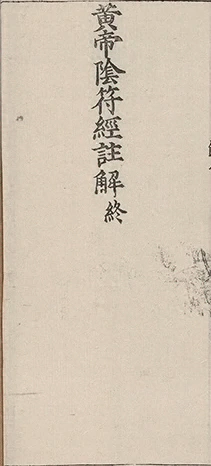 黃帝陰符經註解終